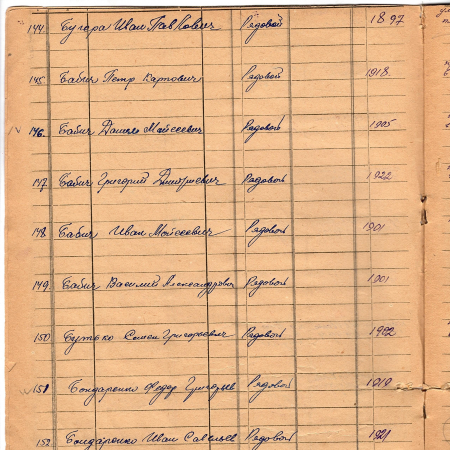 144 Бугора Иван Павлович Рядовой 1897
145. Бабич Петр Карпович Рядовой 1918.
146. Бабич Данило Мойсеевич Рядовой 1905
147 Бабич Григорий Дмитриевич Рядовой 1922
148. Бабич Иван Мойсеевич Рядовой 1901
149. Бабич Василий Александрович Рядовой 1901
150 Бутько Семен Григорьевич Рядовой 1902
151 Бондаренко Федор Григорьев Рядовой 1919
152 Бондаренко Иван Савельев Рядовой 1921